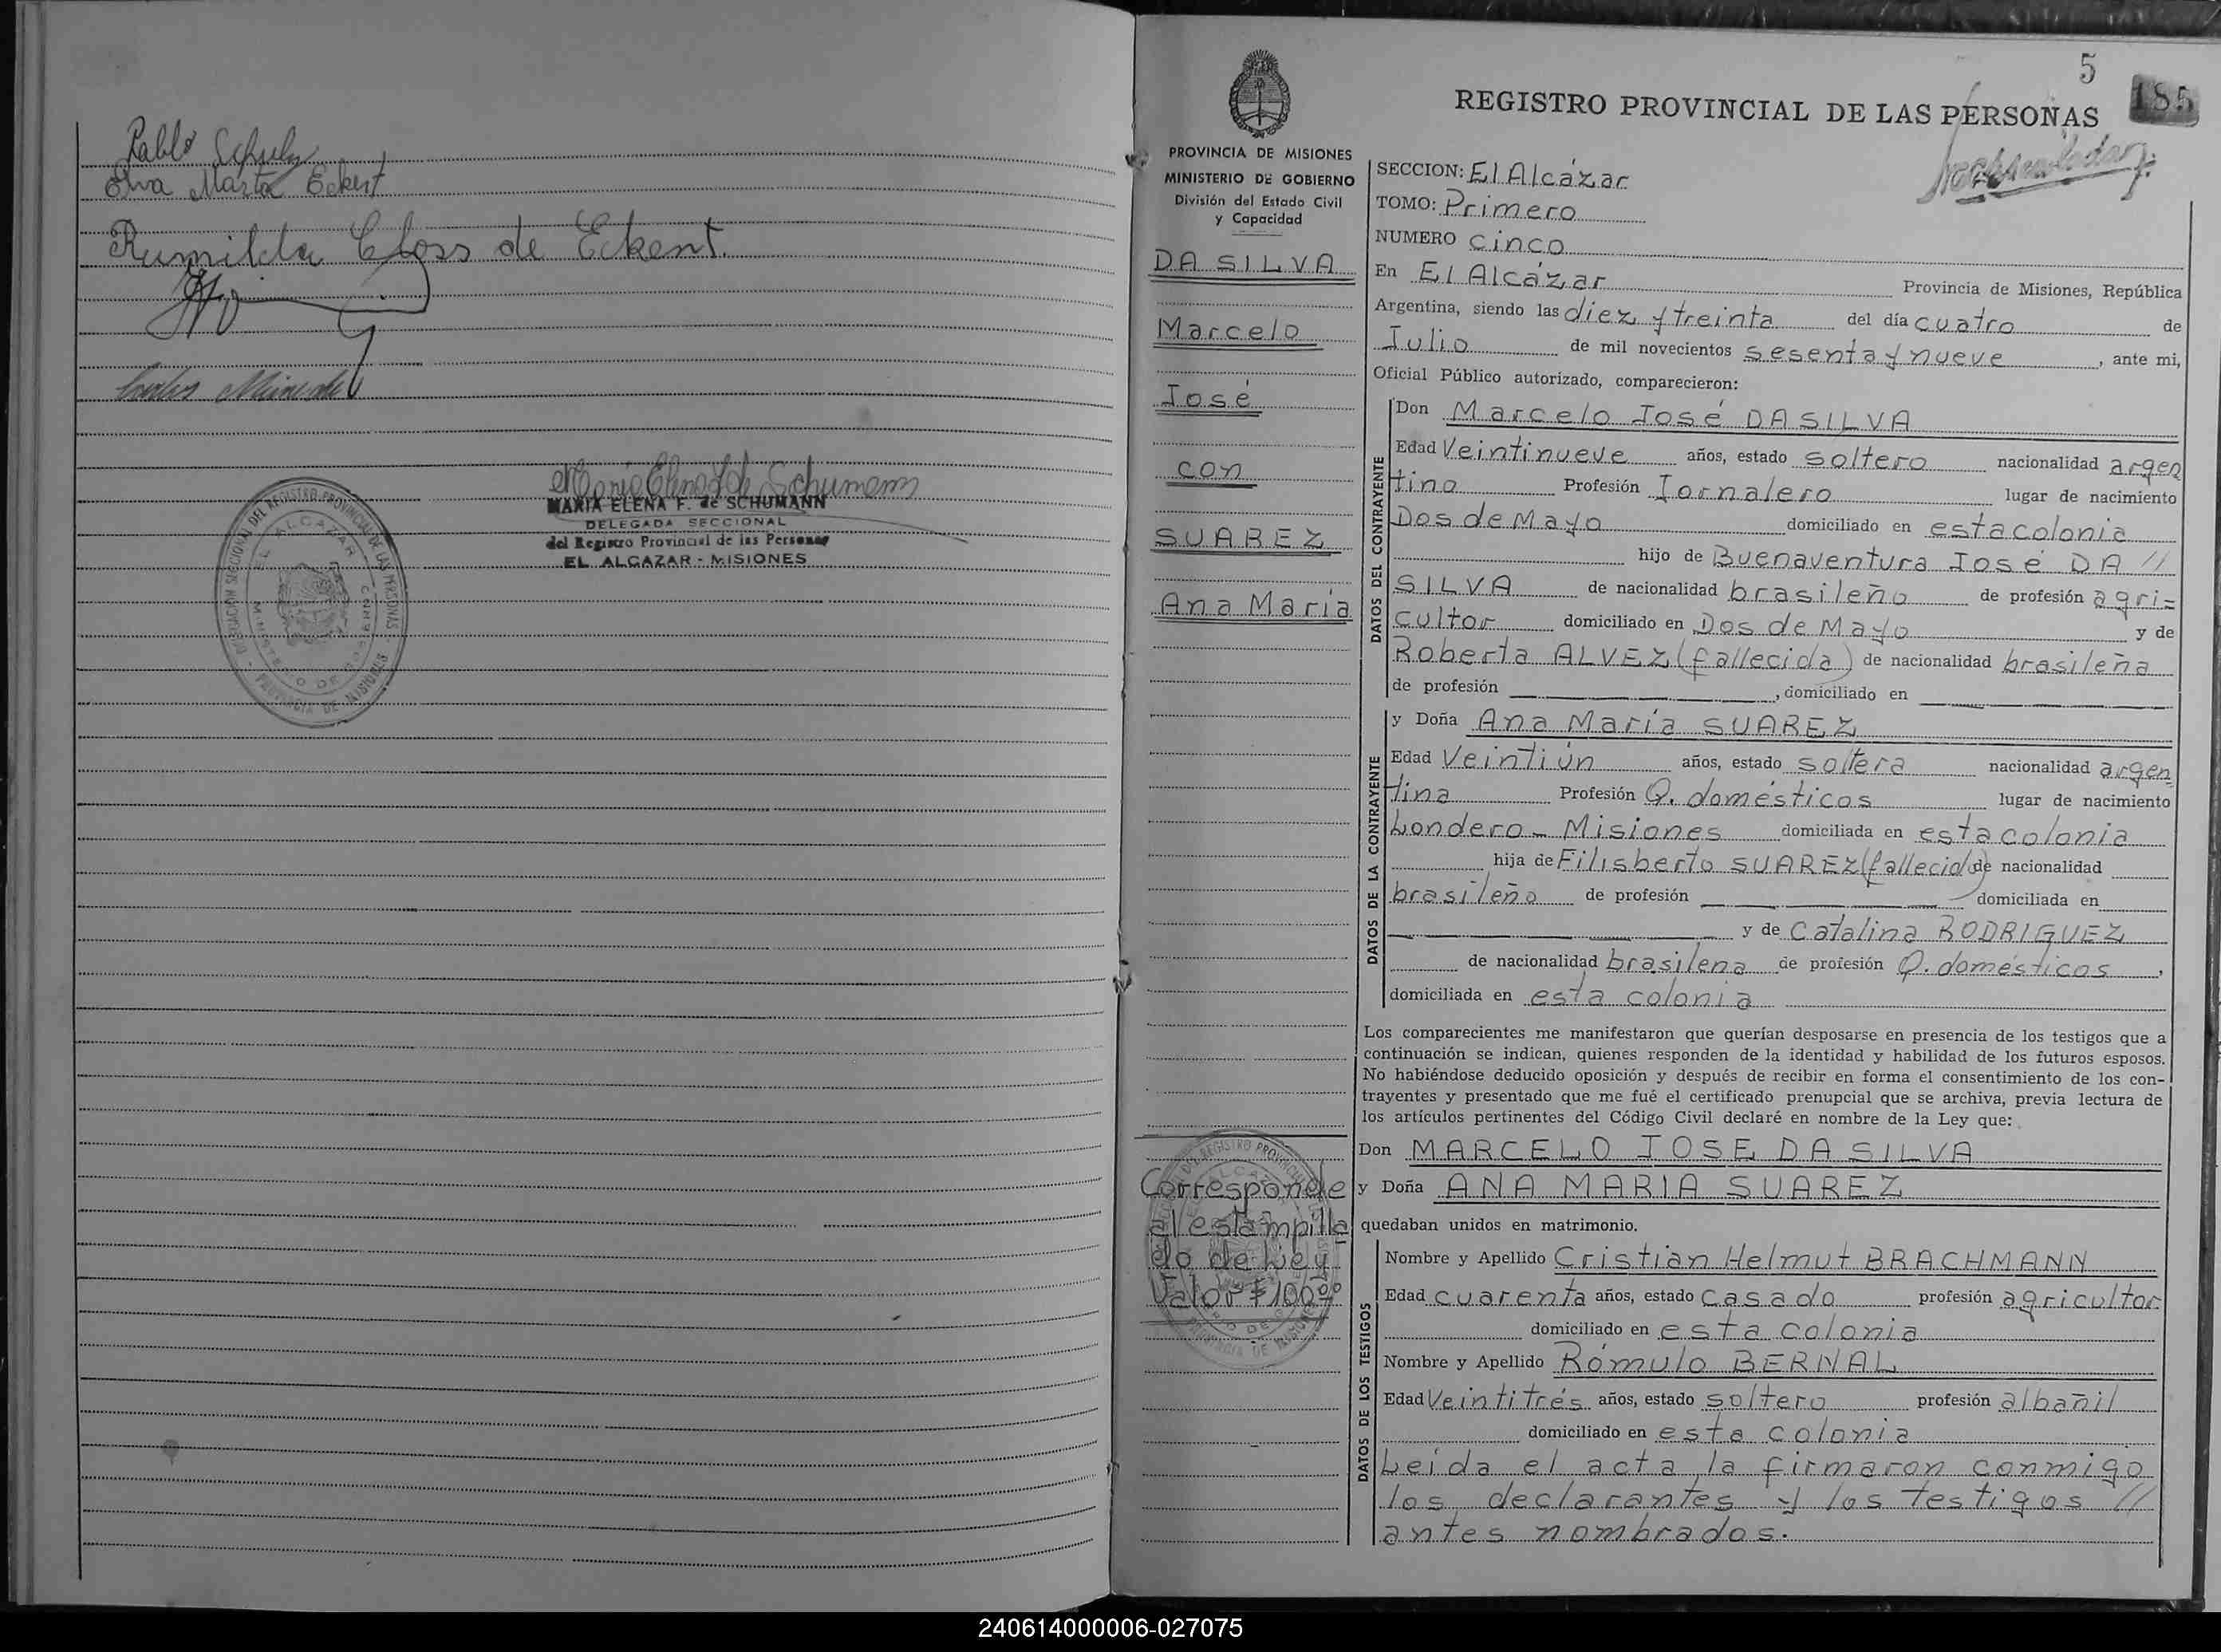 Pablo Schulz
Elva Marta Eckert
Rumilda Closs de Eckert.
MARIA ELENA F. de SCHUMANN
DELEGADA SECCIONAL
del Registro Provincial de las Personas
EL ALCAZAR - MISIONES
DELEGACION SECCIONAL DEL REGISTRO PROVINCIAL DE LAS PERSONAS
EL ALCAZAR
MINISTERIO DE GOBIERNO
PROVINCIA DE MISIONES
5
185
REGISTRO PROVINCIAL DE LAS PERSONAS
PROVINCIA DE MISIONES
MINISTERIO DE GOBIERNO
División del Estado Civil
y Capacidad
DA SILVA
Marcelo
José
con
SUAREZ
Ana María
Corresponde
al estampilla
do de Ley
Valor $ 100,00
SECCION: El Alcázar
TOMO: Primero
NUMERO cinco
En El Alcázar Provincia de Misiones, República
Argentina, siendo las diez y treinta del día cuatro de
Julio de mil novecientos sesenta y nueve, ante mi,
Oficial Público autorizado, comparecieron:
DATOS DEL CONTRAYENTE
Don Marcelo José DA SILVA
Edad Veintinueve años, estado soltero nacionalidad argen
tino Profesión Jornalero lugar de nacimiento
Dos de Mayo domiciliado en esta colonia
hijo de Buenaventura José DA //
SILVA de nacionalidad brasileño de profesión agri=
cultor domiciliado en Dos de Mayo y de
Roberta ALVEZ (fallecida) de nacionalidad brasileña
de profesión , domiciliado en
DATOS DE LA CONTRAYENTE
y Doña Ana María SUAREZ
Edad Veintiún años, estado soltera nacionalidad argen
tina Profesión Q. domésticos lugar de nacimiento
Londero - Misiones domiciliada en esta colonia
hija de Filisberto SUAREZ (fallecido) de nacionalidad
brasileño de profesión domiciliada en
y de Catalina RODRIGUEZ
de nacionalidad brasilena de profesión Q. domésticos,
domiciliada en esta colonia
Los comparecientes me manifestaron que querían desposarse en presencia de los testigos que a
continuación se indican, quienes responden de la identidad y habilidad de los futuros esposos.
No habiéndose deducido oposición y después de recibir en forma el consentimiento de los con-
trayentes y presentado que me fué el certificado prenupcial que se archiva, previa lectura de
los artículos pertinentes del Código Civil declaré en nombre de la Ley que:
Don MARCELO JOSE DA SILVA
y Doña ANA MARIA SUAREZ
quedaban unidos en matrimonio.
DATOS DE LOS TESTIGOS
Nombre y Apellido Cristian Helmut BRACHMANN
Edad cuarenta años, estado casado profesión agricultor
domiciliado en esta colonia
Nombre y Apellido Rómulo BERNAL
Edad Veintitrés años, estado soltero profesión albañil
domiciliado en esta colonia
Leída el acta la firmaron conmigo
los declarantes y los testigos //
antes nombrados.
240614000006-027075